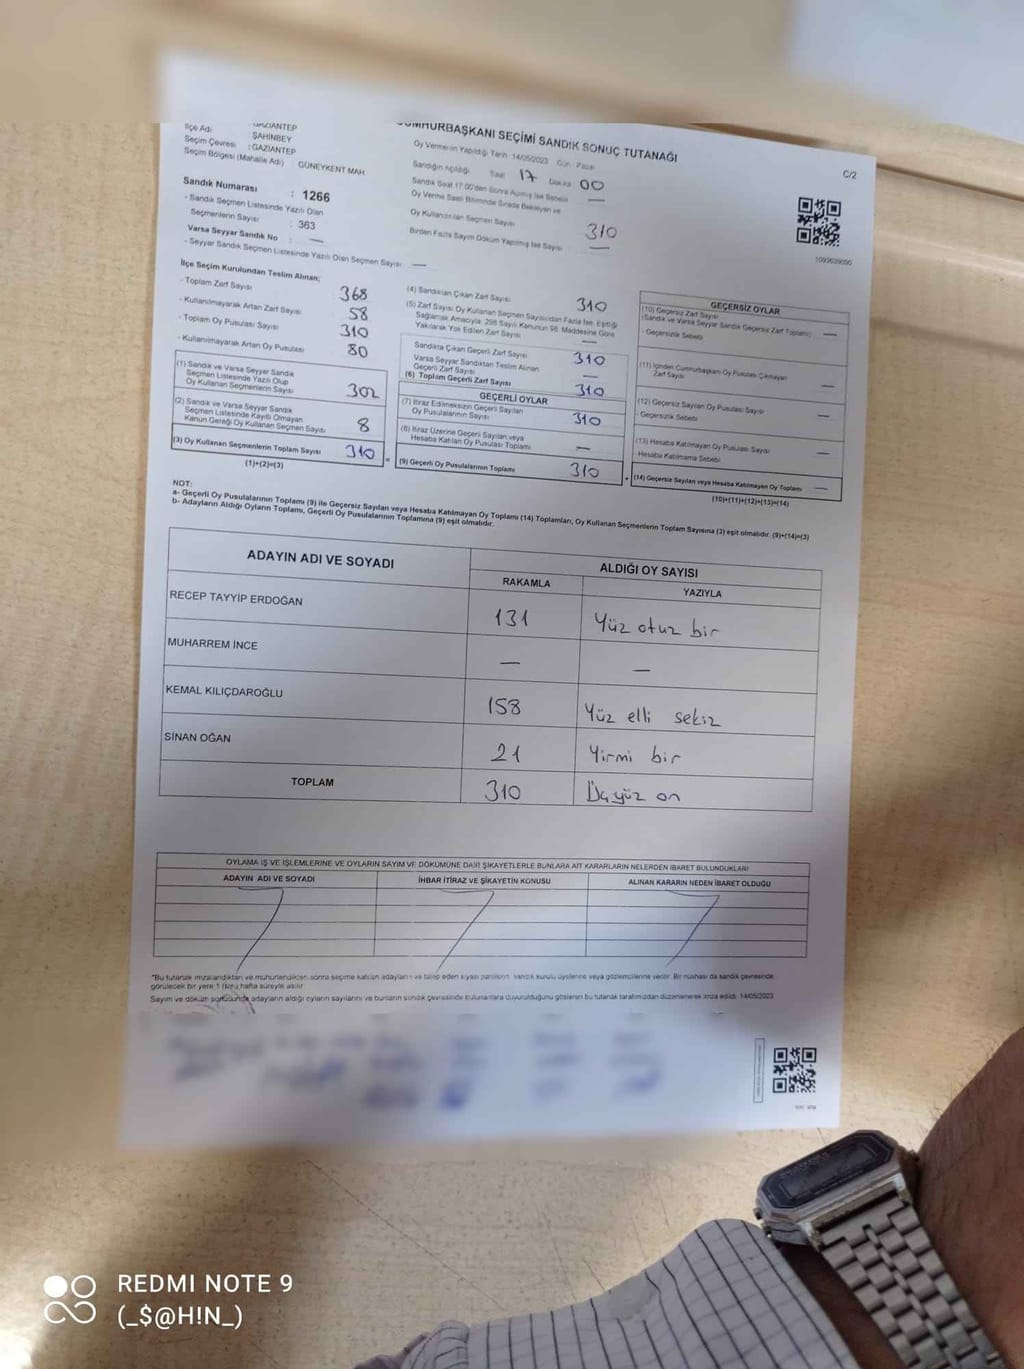 GAZİANTEP
İlçe Adı : ŞAHİNBEY
Seçim Çevresi : GAZİANTEP
Seçim Bölgesi (Mahalle Adı) GÜNEYKENT MAH
Sandık Numarası : 1266
- Sandık Seçmen Listesinde Yazılı Olan
Seçmenlerin Sayısı : 363
Varsa Seyyar Sandık No : —
- Seyyar Sandık Seçmen Listesinde Yazılı Olan Seçmen Sayısı : —
CUMHURBAŞKANI SEÇİMİ SANDIK SONUÇ TUTANAĞI
Oy Vermenin Yapıldığı Tarih :14/05/2023 Gün : Pazar
Sandığın Açıldığı Saat 17 Dakika 00
Sandık Saat 17.00'den Sonra Açılmış İse Sebebi —
Oy Verme Saati Bitiminde Sırada Bekleyen ve
Oy Kullandırılan Seçmen Sayısı 310
Birden Fazla Sayım Döküm Yapılmış İse Sayısı —
C/2
1093639090
İlçe Seçim Kurulundan Teslim Alınan;
- Toplam Zarf Sayısı 368
- Kullanılmayarak Artan Zarf Sayısı 58
- Toplam Oy Pusulası Sayısı 310
- Kullanılmayarak Artan Oy Pusulası 80
(1) Sandık ve Varsa Seyyar Sandık
Seçmen Listesinde Yazılı Olup
Oy Kullanan Seçmenlerin Sayısı 302
(2) Sandık ve Varsa Seyyar Sandık
Seçmen Listesinde Kayıtlı Olmayan
Kanun Gereği Oy Kullanan Seçmen Sayısı 8
(3) Oy Kullanan Seçmenlerin Toplam Sayısı 310
(1)+(2)=(3)
(4) Sandıktan Çıkan Zarf Sayısı 310
(5) Zarf Sayısı Oy Kullanan Seçmen Sayısından Fazla İse, Eşitliği
Sağlamak Amacıyla; 298 Sayılı Kanunun 98. Maddesine Göre
Yakılarak Yok Edilen Zarf Sayısı —
Sandıkta Çıkan Geçerli Zarf Sayısı 310
Varsa Seyyar Sandıktan Teslim Alınan
Geçerli Zarf Sayısı —
(6) Toplam Geçerli Zarf Sayısı 310
GEÇERLİ OYLAR
(7) İtiraz Edilmeksizin Geçerli Sayılan
Oy Pusulalarının Sayısı 310
(8) İtiraz Üzerine Geçerli Sayılan veya
Hesaba Katılan Oy Pusulası Toplamı —
(9) Geçerli Oy Pusulalarının Toplamı 310
GEÇERSİZ OYLAR
(10) Geçersiz Zarf Sayısı
(Sandık ve Varsa Seyyar Sandık Geçersiz Zarf Toplamı) —
- Geçersizlik Sebebi
(11) İçinden Cumhurbaşkanı Oy Pusulası Çıkmayan
Zarf Sayısı —
(12) Geçersiz Sayılan Oy Pusulası Sayısı —
Geçersizlik Sebebi
(13) Hesaba Katılmayan Oy Pusulası Sayısı —
- Hesaba Katılmama Sebebi
(14) Geçersiz Sayılan veya Hesaba Katılmayan Oy Toplamı —
(10)+(11)+(12)+(13)=(14)
NOT:
a- Geçerli Oy Pusulalarının Toplamı (9) ile Geçersiz Sayılan veya Hesaba Katılmayan Oy Toplamı (14) Toplamları, Oy Kullanan Seçmenlerin Toplam Sayısına (3) eşit olmalıdır. (9)+(14)=(3)
b- Adayların Aldığı Oyların Toplamı, Geçerli Oy Pusulalarının Toplamına (9) eşit olmalıdır.
ADAYIN ADI VE SOYADI ALDIĞI OY SAYISI
RAKAMLA YAZIYLA
RECEP TAYYİP ERDOĞAN 131 Yüz otuz bir
MUHARREM İNCE — —
KEMAL KILIÇDAROĞLU 158 Yüz elli sekiz
SİNAN OĞAN 21 Yirmi bir
TOPLAM 310 Üçyüz on
OYLAMA İŞ VE İŞLEMLERİNE VE OYLARIN SAYIM VE DÖKÜMÜNE DAİR ŞİKAYETLERLE BUNLARA AİT KARARLARIN NELERDEN İBARET BULUNDUKLARI
ADAYIN ADI VE SOYADI İHBAR İTİRAZ VE ŞİKAYETİN KONUSU ALINAN KARARIN NEDEN İBARET OLDUĞU
*Bu tutanak imzalandıktan ve mühürlendikten sonra seçime katılan adayların ve talep eden siyasi partilerin sandık kurulu üyelerine veya gözlemcilerine verilir. Bir nüshası da sandık çevresinde
görülecek bir yere 1 (bir) hafta süreyle asılır
Sayım ve döküm sonucunda adayların aldığı oyların sayılarını ve bunların sandık çevresinde bulunanlara duyurulduğunu gösteren bu tutanak tarafımızdan düzenlenerek imza edildi. 14/05/2023
REDMI NOTE 9
(_$@H!N_)